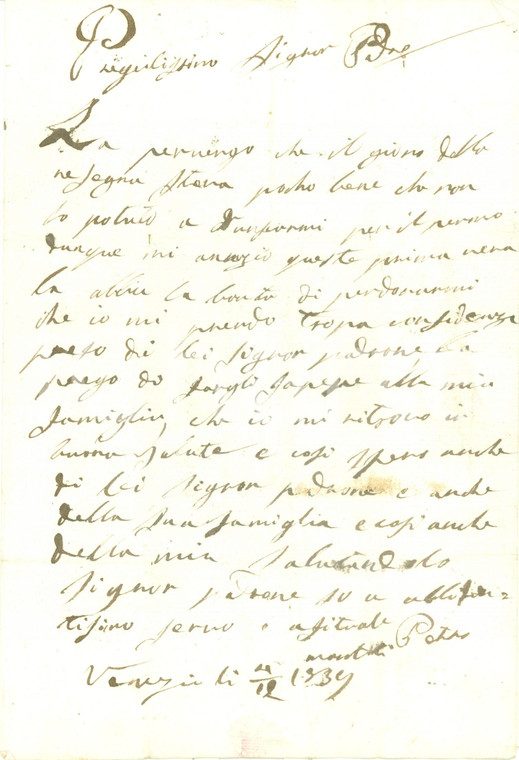 Pregiatissimo Signor Pdne
La pervengo che il giorno della
resegna stava pocho bene che non
o potuto a
dunque mi questa prima vera
la abbia la bontà di perdonarmi
che io mi prendo tropa confidenza
preso di lei Signor padrone La
prego di fargli sapere alla mia
famiglia, che io mi ritrovo in
buona salute e cosi spero anche
di lei Signor padrone e anche
della sua famiglia e cosi anche
della mia Salutandolo
Signor padrone
servo
Petro
Venezia li 1839